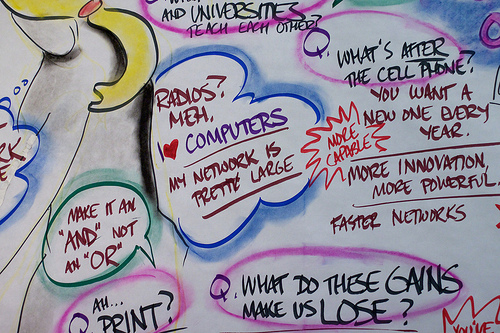 AND UNIVERSITIES
TEACH EACH OTHER?
Q. WHAT'S AFTER
THE CELL PHONE?
YOU WANT A
NEW ONE EVERY
YEAR.
MORE
CAPABLE
MORE INNOVATION,
MORE POWERFUL.
FASTER NETWORKS
RADIOS?
MEH.
I ♥ COMPUTERS
MY NETWORK IS
PRETTY LARGE
MAKE IT AN
"AND" NOT
AN "OR"
Q. AH...
PRINT?
Q. WHAT DO THESE GAINS
MAKE US LOSE?